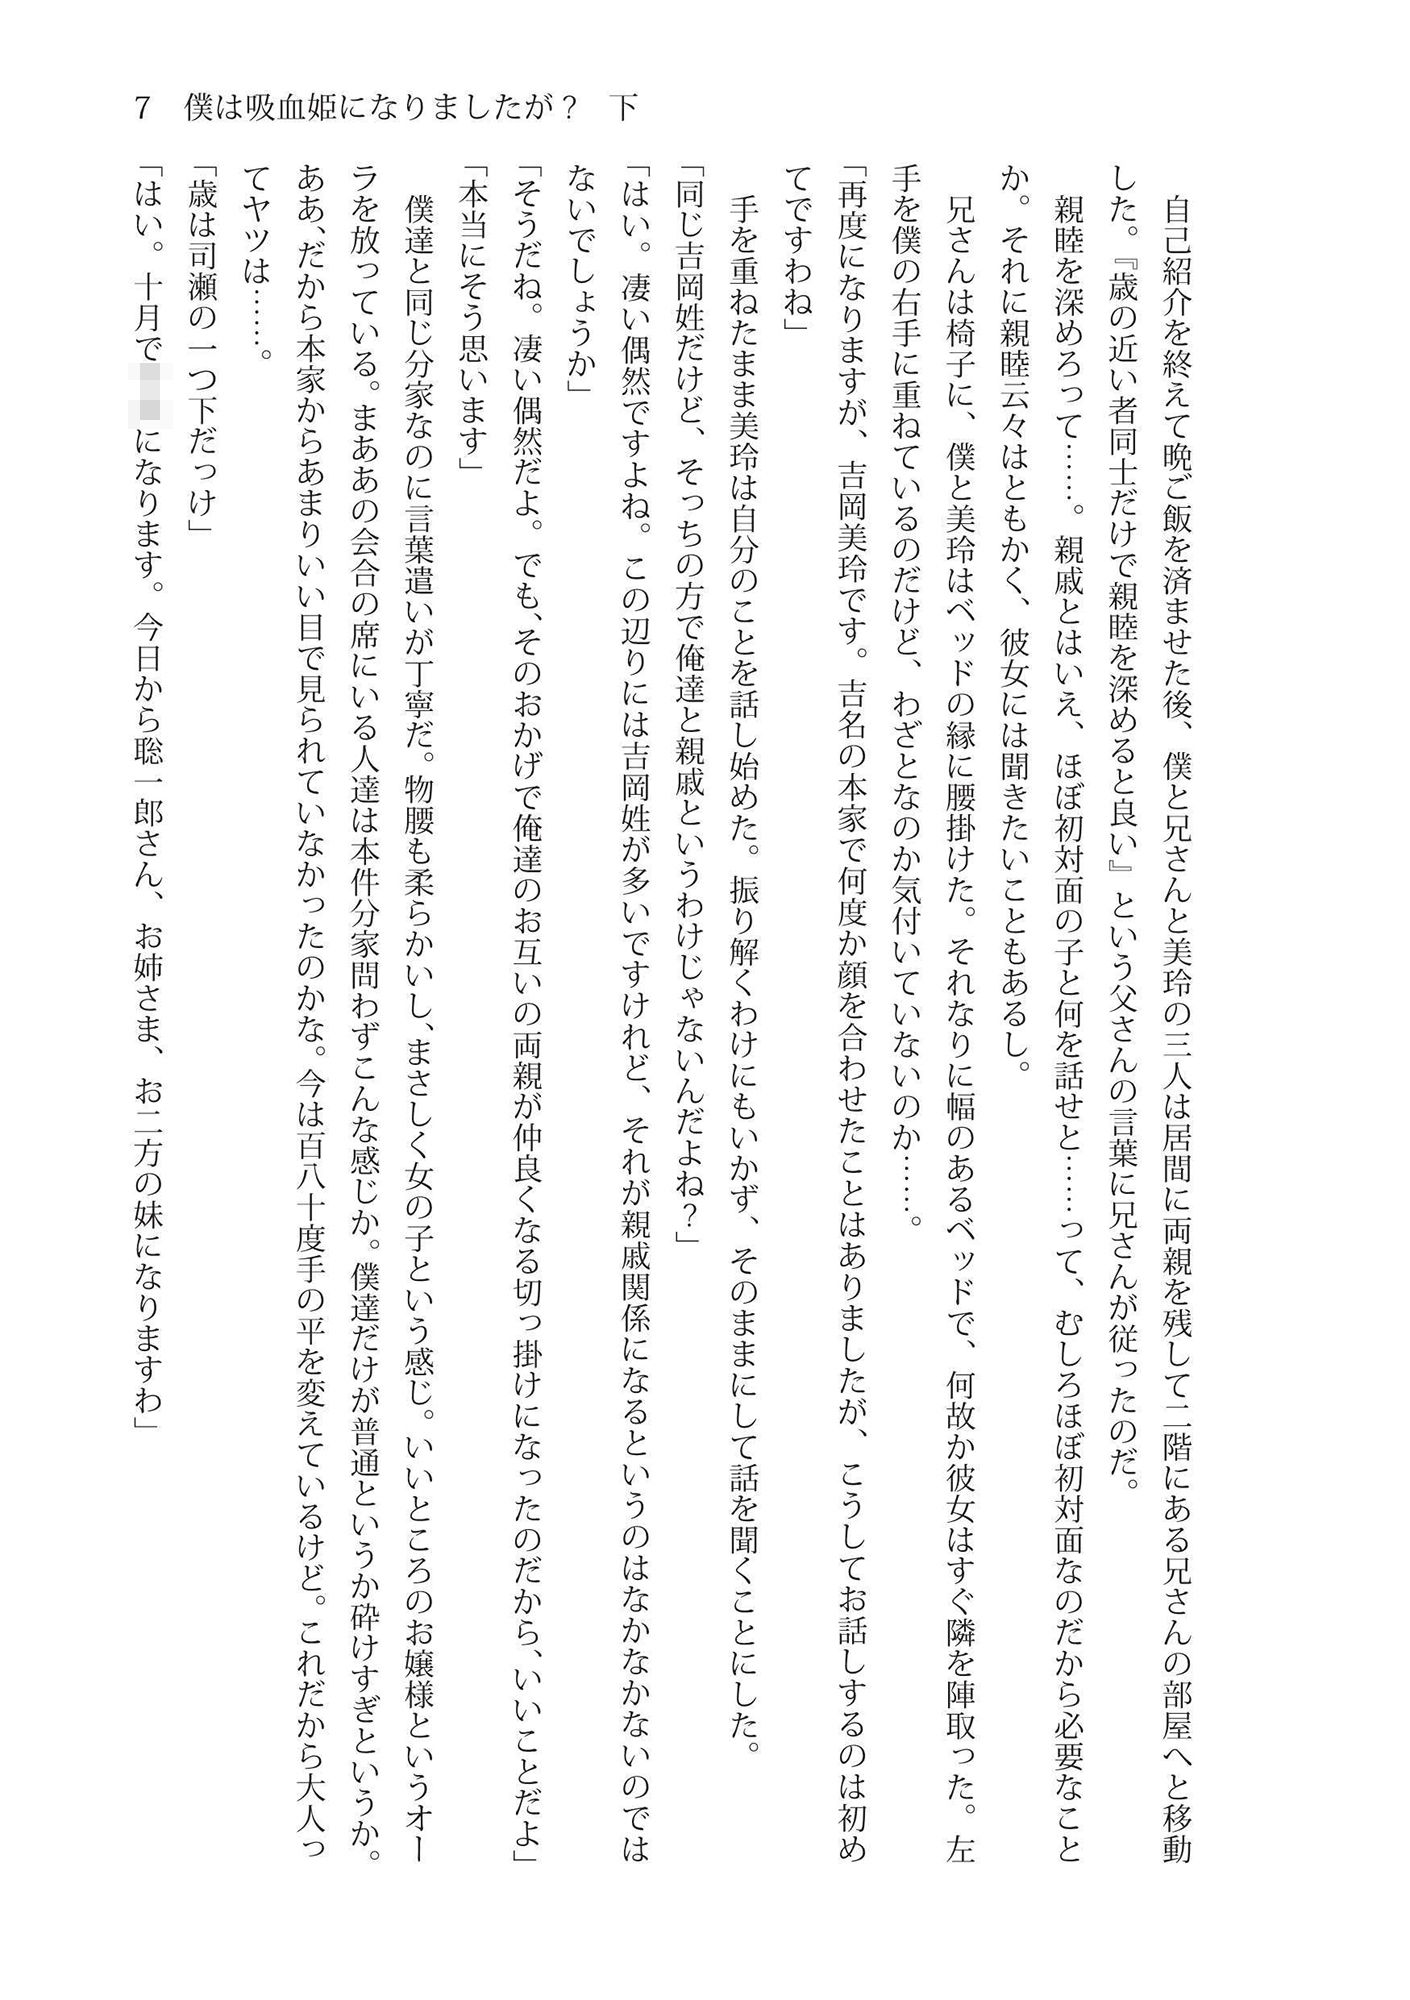 7　僕は吸血姫になりましたが？　下
　自己紹介を終えて晩ご飯を済ませた後、僕と兄さんと美玲の三人は居間に両親を残して二階にある兄さんの部屋へと移動
した。『歳の近い者同士だけで親睦を深めると良い』という父さんの言葉に兄さんが従ったのだ。
　親睦を深めろって……。親戚とはいえ、ほぼ初対面の子と何を話せと……って、むしろほぼ初対面なのだから必要なこと
か。それに親睦云々はともかく、彼女には聞きたいこともあるし。
　兄さんは椅子に、僕と美玲はベッドの縁に腰掛けた。それなりに幅のあるベッドで、何故か彼女はすぐ隣を陣取った。左
手を僕の右手に重ねているのだけど、わざとなのか気付いていないのか……。
「再度になりますが、吉岡美玲です。吉名の本家で何度か顔を合わせたことはありましたが、こうしてお話しするのは初め
てですわね」
　手を重ねたまま美玲は自分のことを話し始めた。振り解くわけにもいかず、そのままにして話を聞くことにした。
「同じ吉岡姓だけど、そっちの方で俺達と親戚というわけじゃないんだよね？」
「はい。凄い偶然ですよね。この辺りには吉岡姓が多いですけれど、それが親戚関係になるというのはなかなかないのでは
ないでしょうか」
「そうだね。凄い偶然だよ。でも、そのおかげで俺達のお互いの両親が仲良くなる切っ掛けになったのだから、いいことだよ」
「本当にそう思います」
　僕達と同じ分家なのに言葉遣いが丁寧だ。物腰も柔らかいし、まさしく女の子という感じ。いいところのお嬢様というオー
ラを放っている。まああの会合の席にいる人達は本件分家問わずこんな感じか。僕達だけが普通というか砕けすぎというか。
ああ、だから本家からあまりいい目で見られていなかったのかな。今は百八十度手の平を変えているけど。これだから大人っ
てヤツは……。
「歳は司瀬の一つ下だっけ」
「はい。十月で　になります。今日から聡一郎さん、お姉さま、お二方の妹になりますわ」